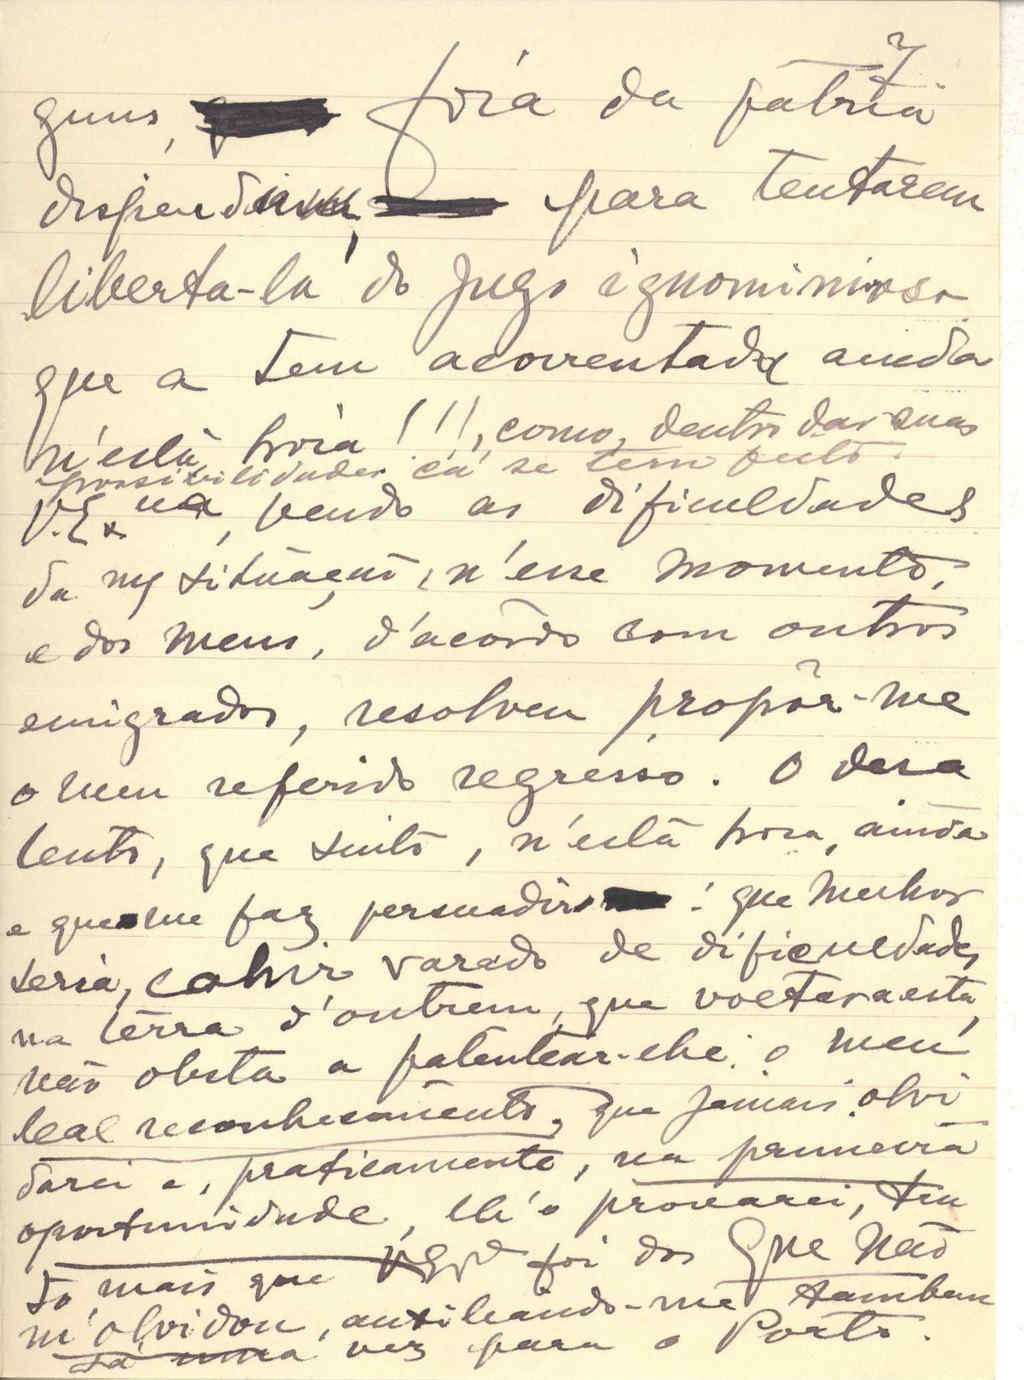 7
guns, fóra da pátria
dispendiam, para tentarem
liberta-la do jugo ignominioso
que a tem acorrentada ainda
n'esta hora!!!, como, dentro das suas
possibilidades cá se tem feito.
V. Ex.cia, vendo as dificuldades
da m/ situação, n'esse momento,
e dos meus, d'acôrdo com outros
emigrados, resolveu propôr-me
o meu referido regresso. O desa
lento, que sinto, n'esta hora, ainda
e que me faz persuadir: que melhor
seria, cahir varado de dificuldades
na terra d'outrem, que voltar a esta,
não obsta a patentear-lhe: o meu
leal reconhecimento, que jamais olvi
darei e, praticamente, na primeira
oportunidade, lh'o provarei, tan
to mais que V. Ex.cia foi dos que não
m'olvidou, auxiliando-me tambem
já uma vez para o Porto.